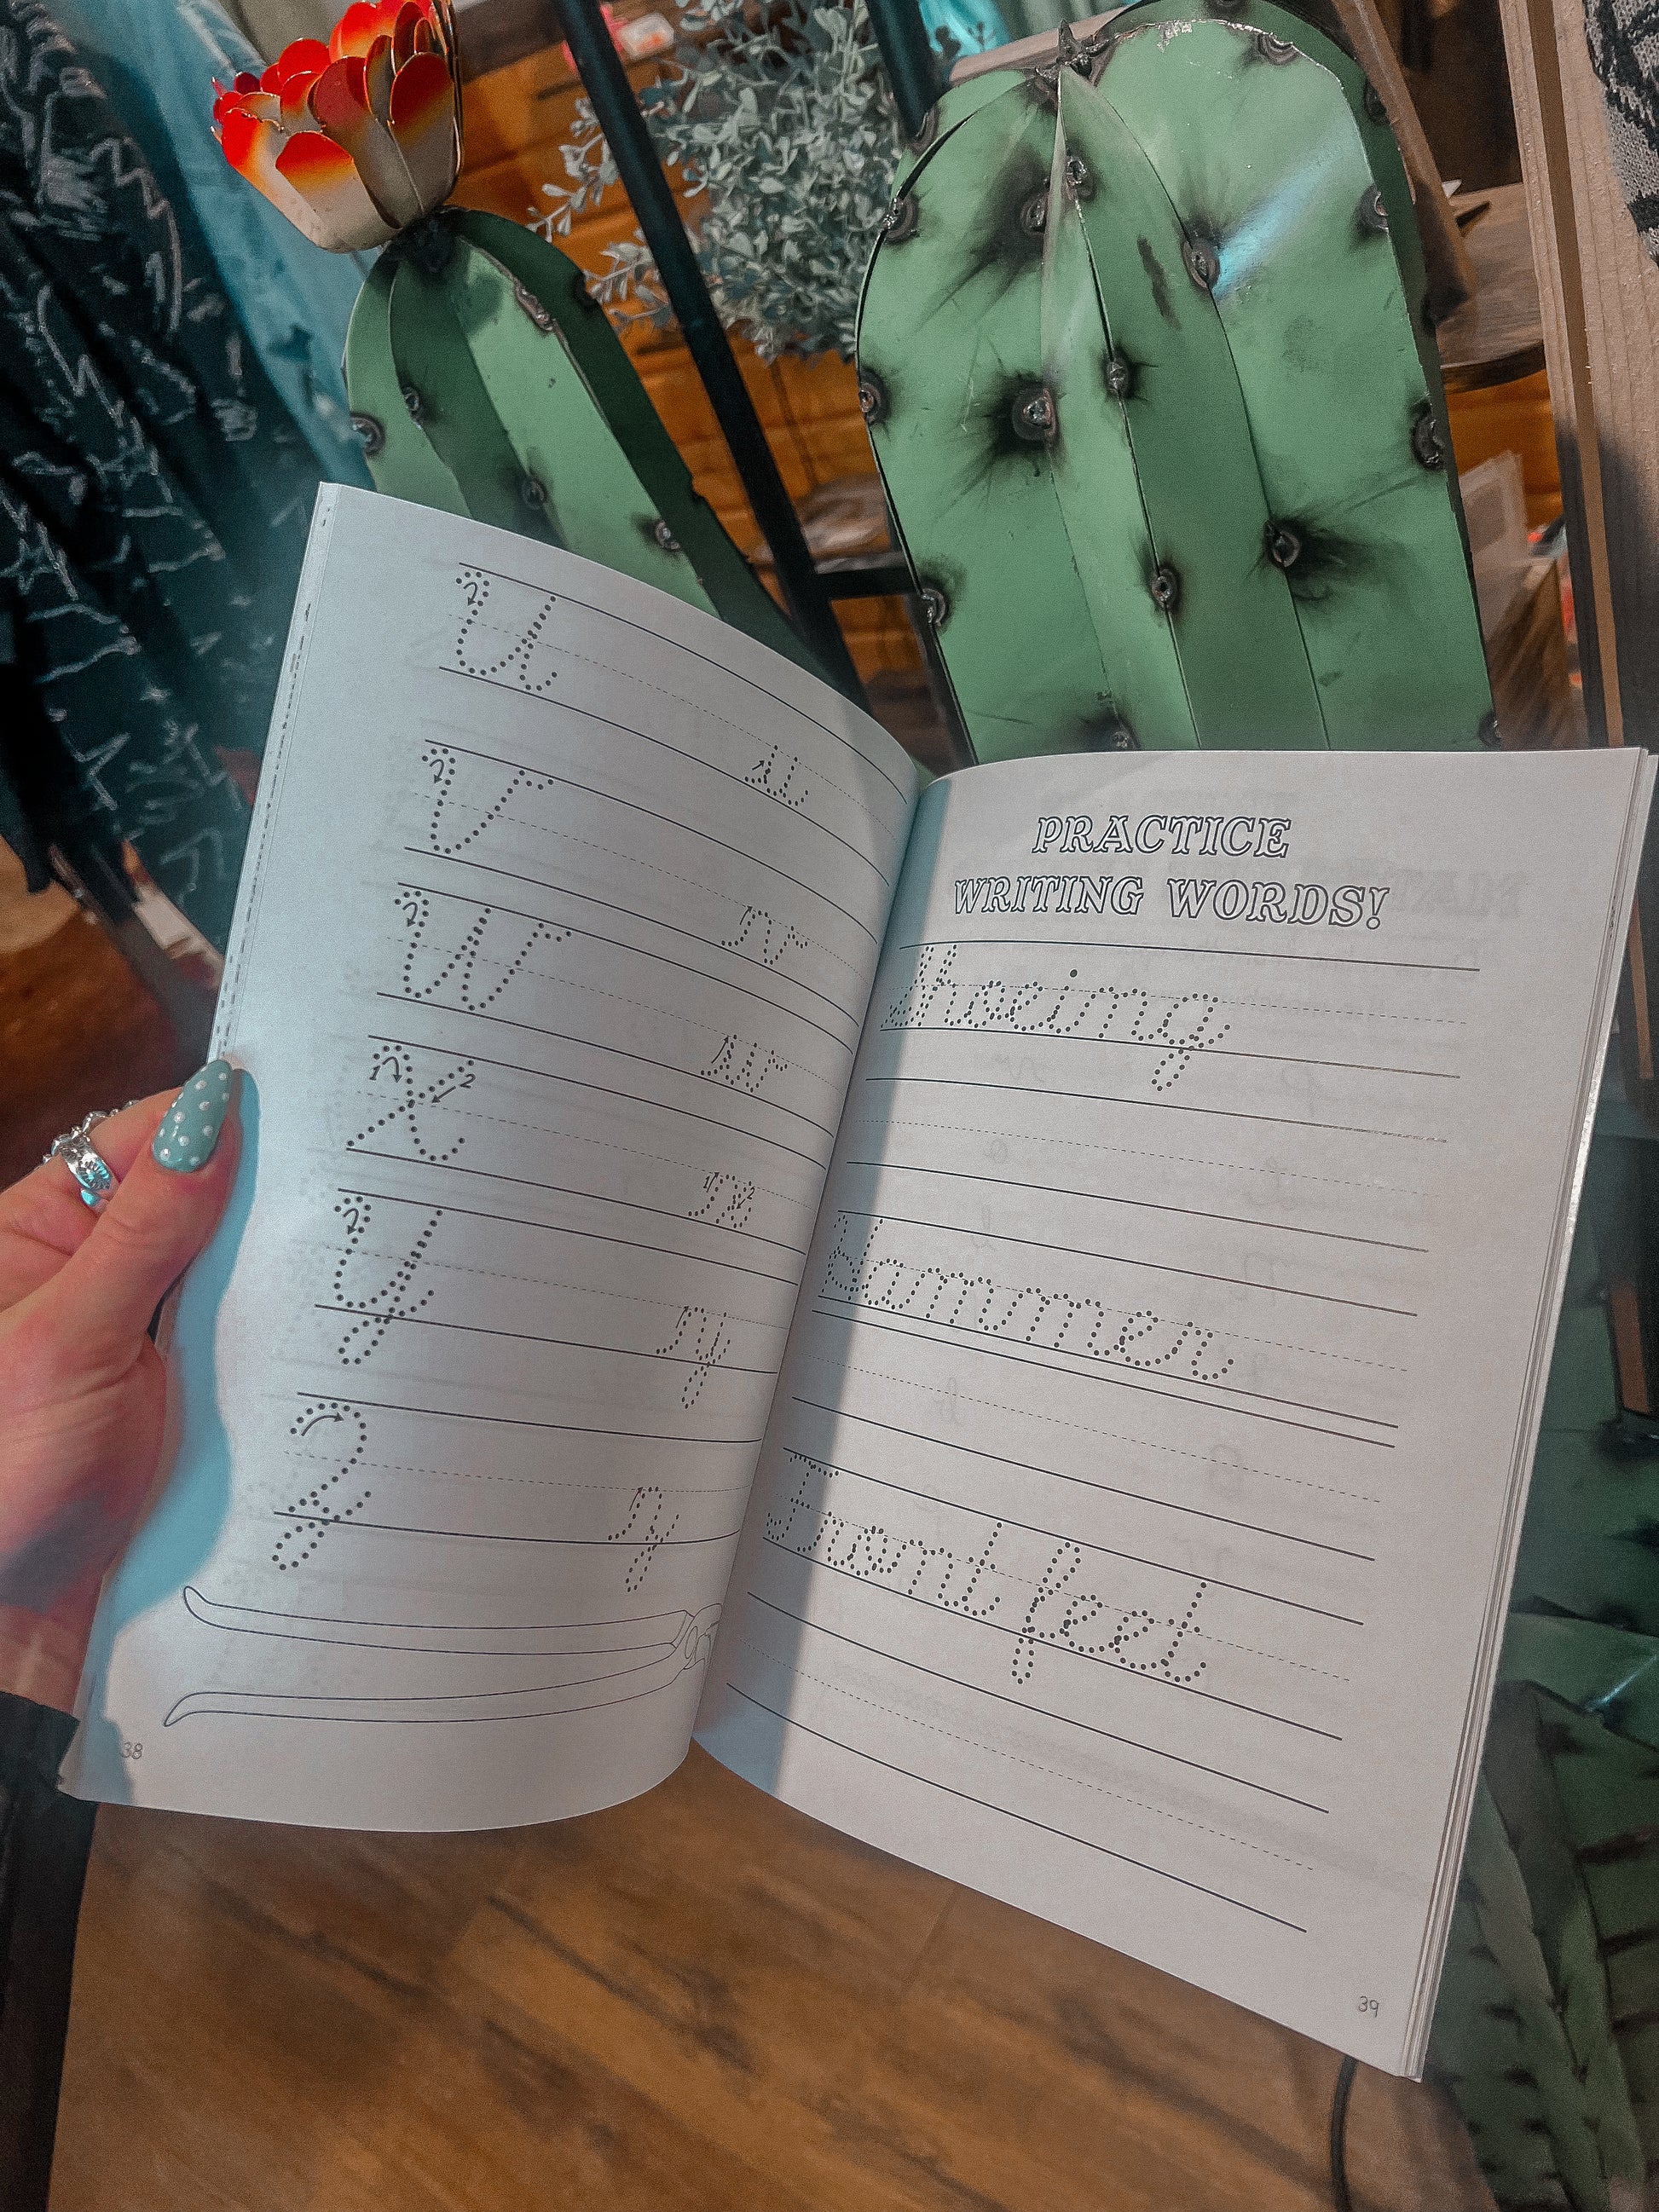 U u
V v
W w
X x
Y y
Z z
38
PRACTICE
WRITING WORDS!
Shoeing
Hammer
Front feet
39